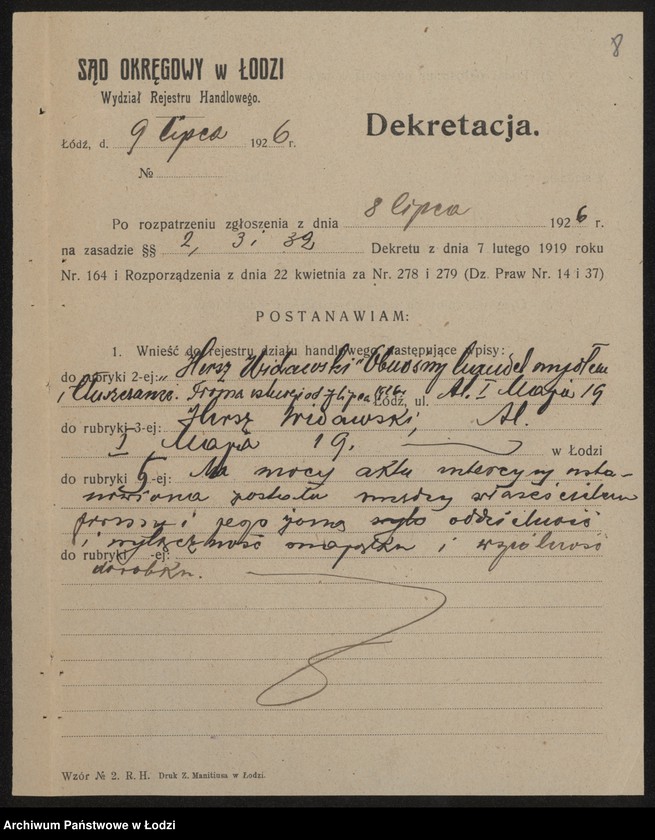 8
SĄD OKRĘGOWY w ŁODZI
Wydział Rejestru Handlowego.
Dekretacja.
Łódź, d. 9 lipca 1926 r.
№
Po rozpatrzeniu zgłoszenia z dnia 8 lipca 1926 r.
na zasadzie §§ 2, 3 i 32 Dekretu z dnia 7 lutego 1919 roku
Nr. 164 i Rozporządzenia z dnia 22 kwietnia za Nr. 278 i 279 (Dz. Praw Nr. 14 i 37)
POSTANAWIAM:
1. Wnieść do rejestru działu handlowego następujące wpisy:
do rubryki 2-ej: „Hersz Widawski" Obwoźny handel mydłem
i tłuszczami. Firma istnieje od lipca Łódź, ul. Al. I Maja 19
do rubryki 3-ej: Hersz Widawski, Al.
I Maja 19. w Łodzi
do rubryki 5-ej: Na mocy aktu intercyzy usta-
nowiona została między właścicielem
firmy i jego żoną oddzielność
i wyłączność majątku i wspólność
do rubryki -ej:
dorobku.
Wzór № 2. R. H. Druk Z. Manitiusa w Łodzi.
Archiwum Państwowe w Łodzi